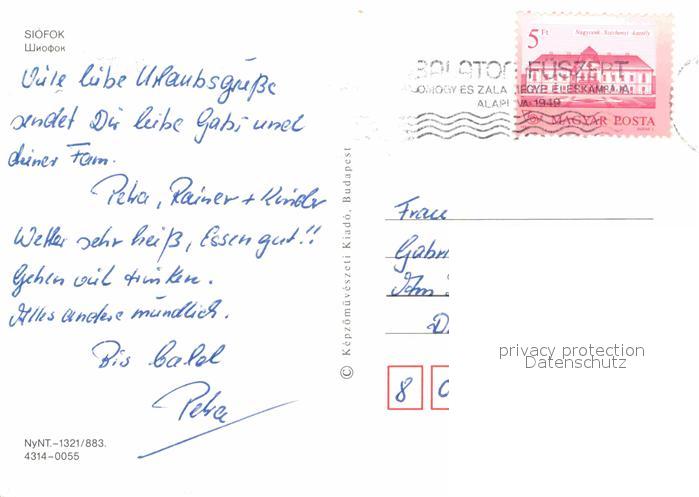 SIÓFOK
Шиофок
Viele liebe Urlaubsgrüße
sendet Dir liebe Gabi und
deiner Fam.
Petra, Rainer + Kinder
Wetter sehr heiß, Essen gut!!
Gehen viel trinken.
Alles andere mündlich.
Bis bald
Petra
NyNT.–1321/883.
4314–0055
© Képzőművészeti Kiadó, Budapest
5 Ft
Nagycenk Széchenyi-kastély
MAGYAR POSTA
BALATON FÜSZÉRT
SOMOGY ÉS ZALA MEGYE ÉLÉSKAMRÁJA
ALAPÍTVA 1949
Frau
Gabri
D
8 0
privacy protection
Datenschutz